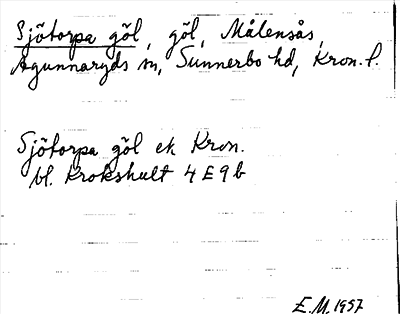 Sjötorpa göl, göl, Målensås,
Agunnaryds sn, Sunnerbo hd, Kron. l.
Sjötorpa göl ek Kron.
bl. Krokshult 4 E 9 b
E.M. 1957